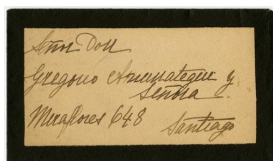 Señor Don
Gregorio Amunategui y
Señora.
Miraflores 648
Santiago